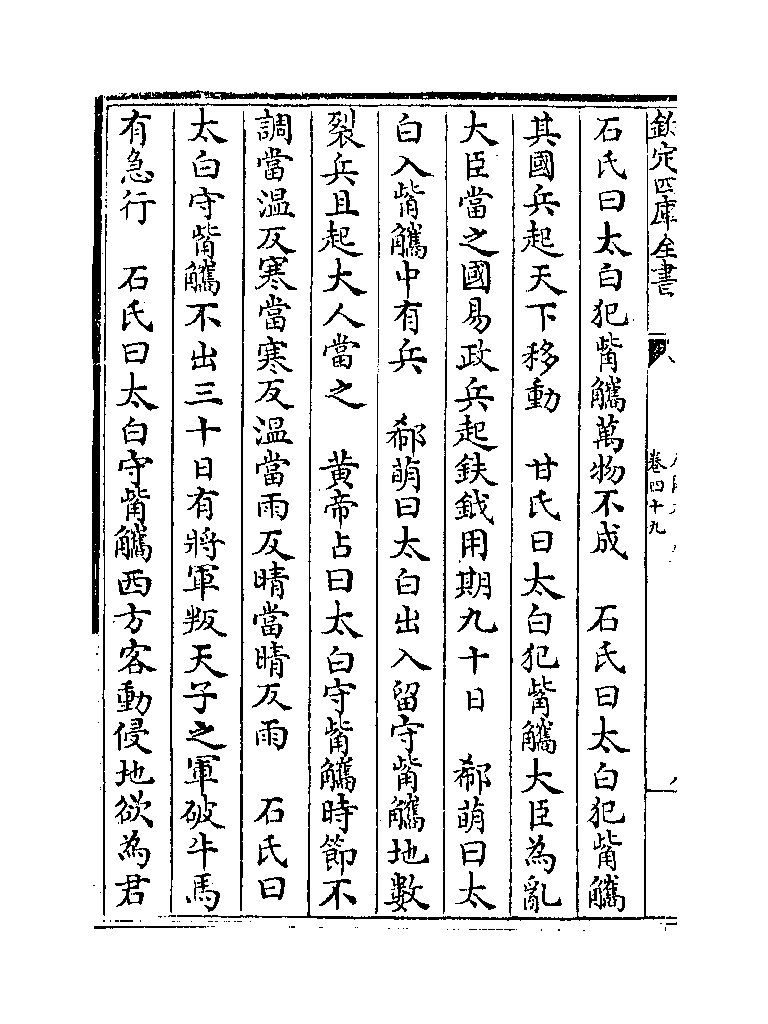 欽定四庫全書
卷四十九
石氏曰太白犯觜觿萬物不成　石氏曰太白犯觜觿
其國兵起天下移動　甘氏曰太白犯觜觿大臣為亂
大臣當之國易政兵起鈇鉞用期九十日　郗萌曰太
白入觜觿中有兵　郗萌曰太白出入留守觜觿地數
裂兵且起大人當之　黄帝占曰太白守觜觿時節不
調當溫反寒當寒反溫當雨反晴當晴反雨　石氏曰
太白守觜觿不出三十日有將軍叛天子之軍破牛馬
有急行　石氏曰太白守觜觿西方客動侵地欲為君